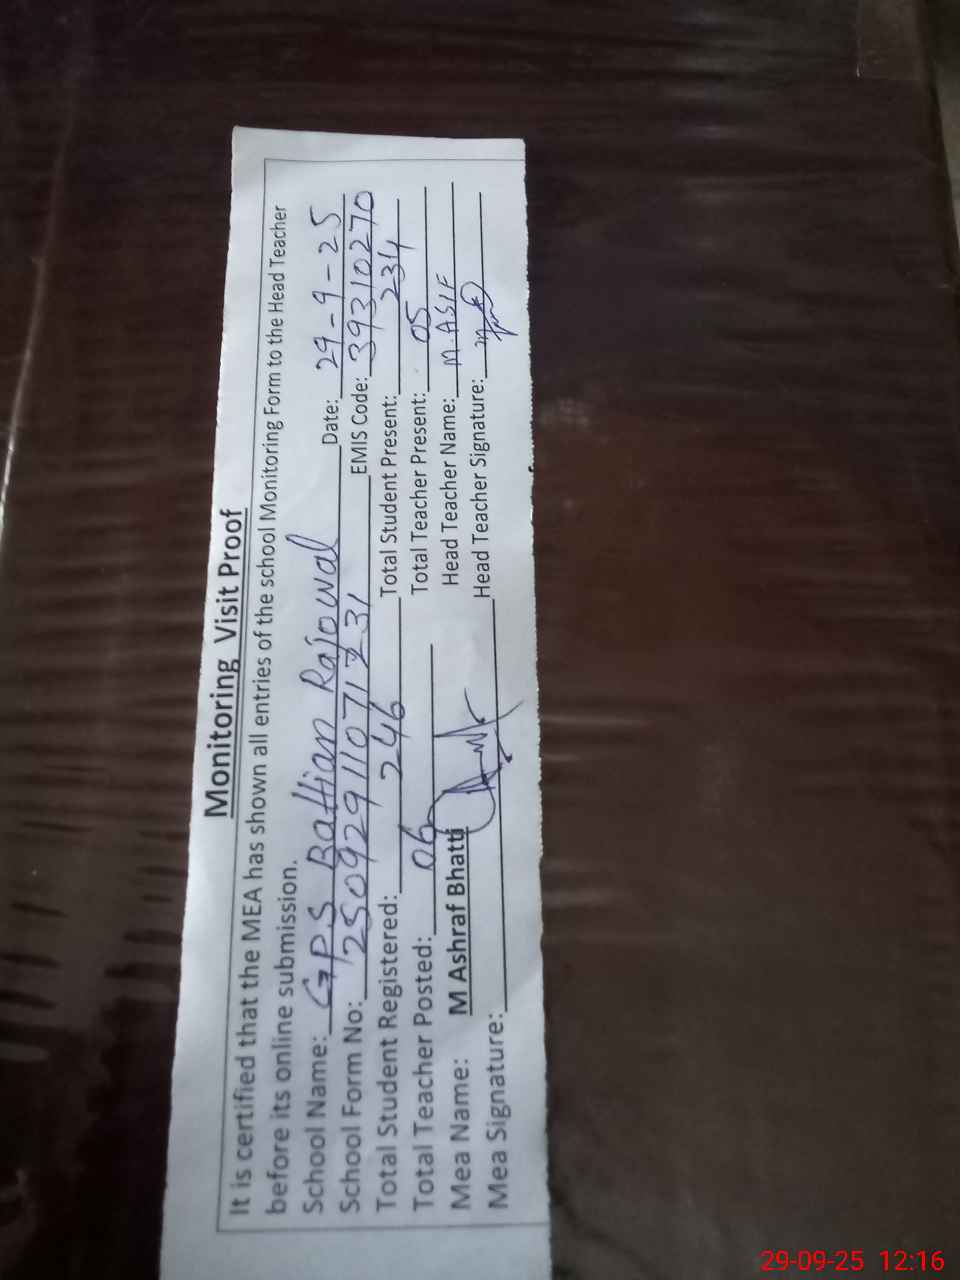 Monitoring Visit Proof
It is certified that the MEA has shown all entries of the school Monitoring Form to the Head Teacher
before its online submission.
School Name: GPS Battian Rajowal Date: 29-9-25
School Form No: 25092911071731 EMIS Code: 39310270
Total Student Registered: 246 Total Student Present: 234
Total Teacher Posted: 06 Total Teacher Present: 05
Mea Name: M Ashraf Bhatti Head Teacher Name: M. ASIF
Mea Signature: Head Teacher Signature:
29-09-25 12:16